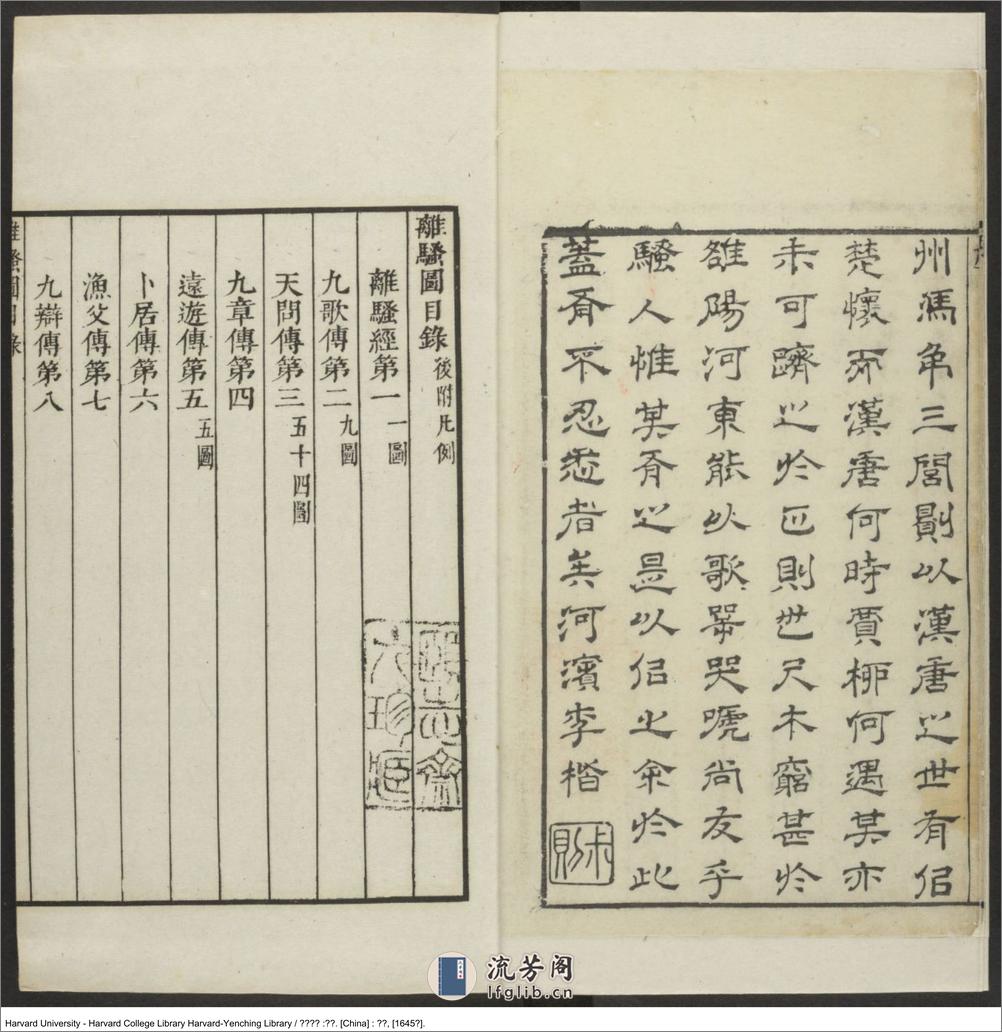 州馮弔三閭勛以漢唐之世有侶
楚懷而漢唐何時賈柳何遇其亦
未可躋之於正則也尺木窮甚於
雒陽河東能以歌哭嘐尚友乎
騷人惟其胥之是以侶之余於此
蓋胥不忍悉者矣河濱李楷
離騷圖目錄 後附凡例
離騷經第一 一圖
九歌傳第二 九圖
天問傳第三 五十四圖
九章傳第四
遠遊傳第五 五圖
卜居傳第六
漁父傳第七
九辯傳第八
離騷圖目錄
流芳阁
lfglib.cn
Harvard University - Harvard College Library Harvard-Yenching Library / ???? :??. [China] : ??, [1645?].